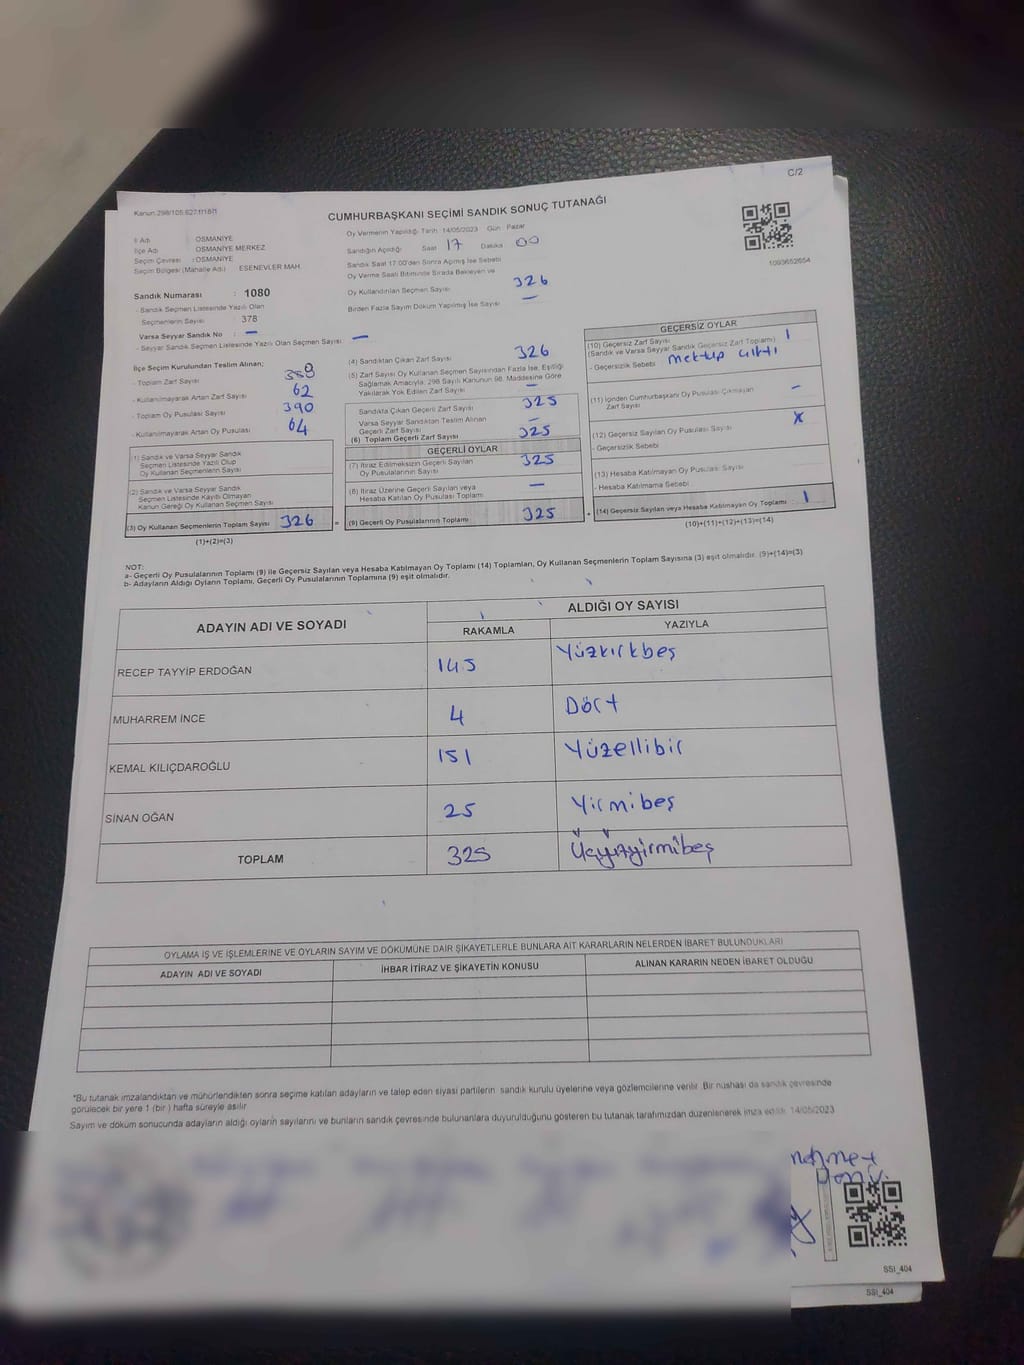 C/2
Kanun:298/105,627/f18/1
CUMHURBAŞKANI SEÇİMİ SANDIK SONUÇ TUTANAĞI
İl Adı OSMANİYE
İlçe Adı OSMANİYE MERKEZ
Seçim Çevresi : OSMANİYE
Seçim Bölgesi (Mahalle Adı) ESENEVLER MAH.
Oy Vermenin Yapıldığı Tarih: 14/05/2023 Gün: Pazar
Sandığın Açıldığı Saat 17 Dakika 00
Sandık Saat 17:00'den Sonra Açmış İse Sebebi
Oy Verme Saati Bitiminde Sırada Bekleyen ve
Oy Kullandırılan Seçmen Sayısı 326
Birden Fazla Sayım Döküm Yapılmış İse Sayısı —
1093652654
Sandık Numarası : 1080
- Sandık Seçmen Listesinde Yazılı Olan
Seçmenlerin Sayısı : 378
Varsa Seyyar Sandık No : —
- Seyyar Sandık Seçmen Listesinde Yazılı Olan Seçmen Sayısı: —
İlçe Seçim Kurulundan Teslim Alınan;
- Toplam Zarf Sayısı
- Kullanılmayarak Artan Zarf Sayısı 62
- Toplam Oy Pusulası Sayısı 390
- Kullanılmayarak Artan Oy Pusulası 64
(1) Sandık ve Varsa Seyyar Sandık
Seçmen Listesinde Yazılı Olup
Oy Kullanan Seçmenlerin Sayısı
(2) Sandık ve Varsa Seyyar Sandık
Seçmen Listesinde Kayıtlı Olmayan
Kanun Gereği Oy Kullanan Seçmen Sayısı
(3) Oy Kullanan Seçmenlerin Toplam Sayısı 326
(1)+(2)=(3)
(4) Sandıktan Çıkan Zarf Sayısı 326
(5) Zarf Sayısı Oy Kullanan Seçmen Sayısından Fazla İse, Eşitliği
Sağlamak Amacıyla, 298 Sayılı Kanunun 98. Maddesine Göre
Yakılarak Yok Edilen Zarf Sayısı —
Sandıkta Çıkan Geçerli Zarf Sayısı 325
Varsa Seyyar Sandıktan Teslim Alınan
Geçerli Zarf Sayısı —
(6) Toplam Geçerli Zarf Sayısı 325
GEÇERLİ OYLAR
(7) İtiraz Edilmeksizin Geçerli Sayılan
Oy Pusulalarının Sayısı 325
(8) İtiraz Üzerine Geçerli Sayılan veya
Hesaba Katılan Oy Pusulası Toplamı —
(9) Geçerli Oy Pusulalarının Toplamı 325
GEÇERSİZ OYLAR
(10) Geçersiz Zarf Sayısı 1
(Sandık ve Varsa Seyyar Sandık Geçersiz Zarf Toplamı)
- Geçersizlik Sebebi mektup çıktı
(11) İçinden Cumhurbaşkanı Oy Pusulası Çıkmayan
Zarf Sayısı —
(12) Geçersiz Sayılan Oy Pusulası Sayısı X
- Geçersizlik Sebebi
(13) Hesaba Katılmayan Oy Pusulası Sayısı
- Hesaba Katılmama Sebebi
(14) Geçersiz Sayılan veya Hesaba Katılmayan Oy Toplamı 1
(10)+(11)+(12)+(13)=(14)
NOT:
a- Geçerli Oy Pusulalarının Toplamı (9) ile Geçersiz Sayılan veya Hesaba Katılmayan Oy Toplamı (14) Toplamları, Oy Kullanan Seçmenlerin Toplam Sayısına (3) eşit olmalıdır. (9)+(14)=(3)
b- Adayların Aldığı Oyların Toplamı, Geçerli Oy Pusulalarının Toplamına (9) eşit olmalıdır.
ADAYIN ADI VE SOYADI ALDIĞI OY SAYISI
RAKAMLA YAZIYLA
RECEP TAYYİP ERDOĞAN 145 Yüzkırkbeş
MUHARREM İNCE 4 Dört
KEMAL KILIÇDAROĞLU 151 Yüzellibir
SİNAN OĞAN 25 Yirmibeş
TOPLAM 325 Üçyüzyirmibeş
OYLAMA İŞ VE İŞLEMLERİNE VE OYLARIN SAYIM VE DÖKÜMÜNE DAİR ŞİKAYETLERLE BUNLARA AİT KARARLARIN NELERDEN İBARET BULUNDUKLARI
ADAYIN ADI VE SOYADI İHBAR İTİRAZ VE ŞİKAYETİN KONUSU ALINAN KARARIN NEDEN İBARET OLDUĞU
*Bu tutanak imzalandıktan ve mühürlendikten sonra seçime katılan adayların ve talep eden siyasi partilerin sandık kurulu üyelerine veya gözlemcilerine verilir. Bir nüshası da sandık çevresinde
görülecek bir yere 1 (bir ) hafta süreyle asılır.
Sayım ve döküm sonucunda adayların aldığı oyların sayılarını ve bunların sandık çevresinde bulunanlara duyurulduğunu gösteren bu tutanak tarafımızdan düzenlenerek imza edildi. 14/05/2023
SSI_404
SSI_404